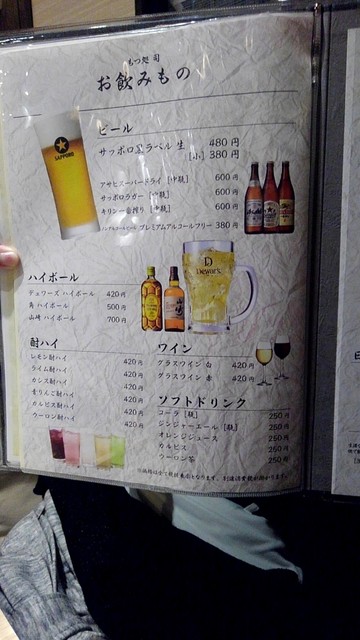 もつ処 司
お飲みもの
SAPPORO
ビール
サッポロ黒ラベル 生 480円
[小] 380円
アサヒスーパードライ [中瓶] 600円
サッポロラガー [中瓶] 600円
キリン一番搾り [中瓶] 600円
ノンアルコールビール プレミアムアルコールフリー 380円
ハイボール
デュワーズ ハイボール 420円
角 ハイボール 500円
山崎 ハイボール 700円
Dewar's
酎ハイ
レモン酎ハイ 420円
ライム酎ハイ 420円
カシス酎ハイ 420円
青りんご酎ハイ 420円
カルピス酎ハイ 420円
ウーロン酎ハイ 420円
ワイン
グラスワイン 白 420円
グラスワイン 赤 420円
ソフトドリンク
コーラ [瓶] 250円
ジンジャーエール [瓶] 250円
オレンジジュース 250円
カルピス 250円
ウーロン茶 250円
※価格は全て税抜表示となります。別途消費税が掛かります。